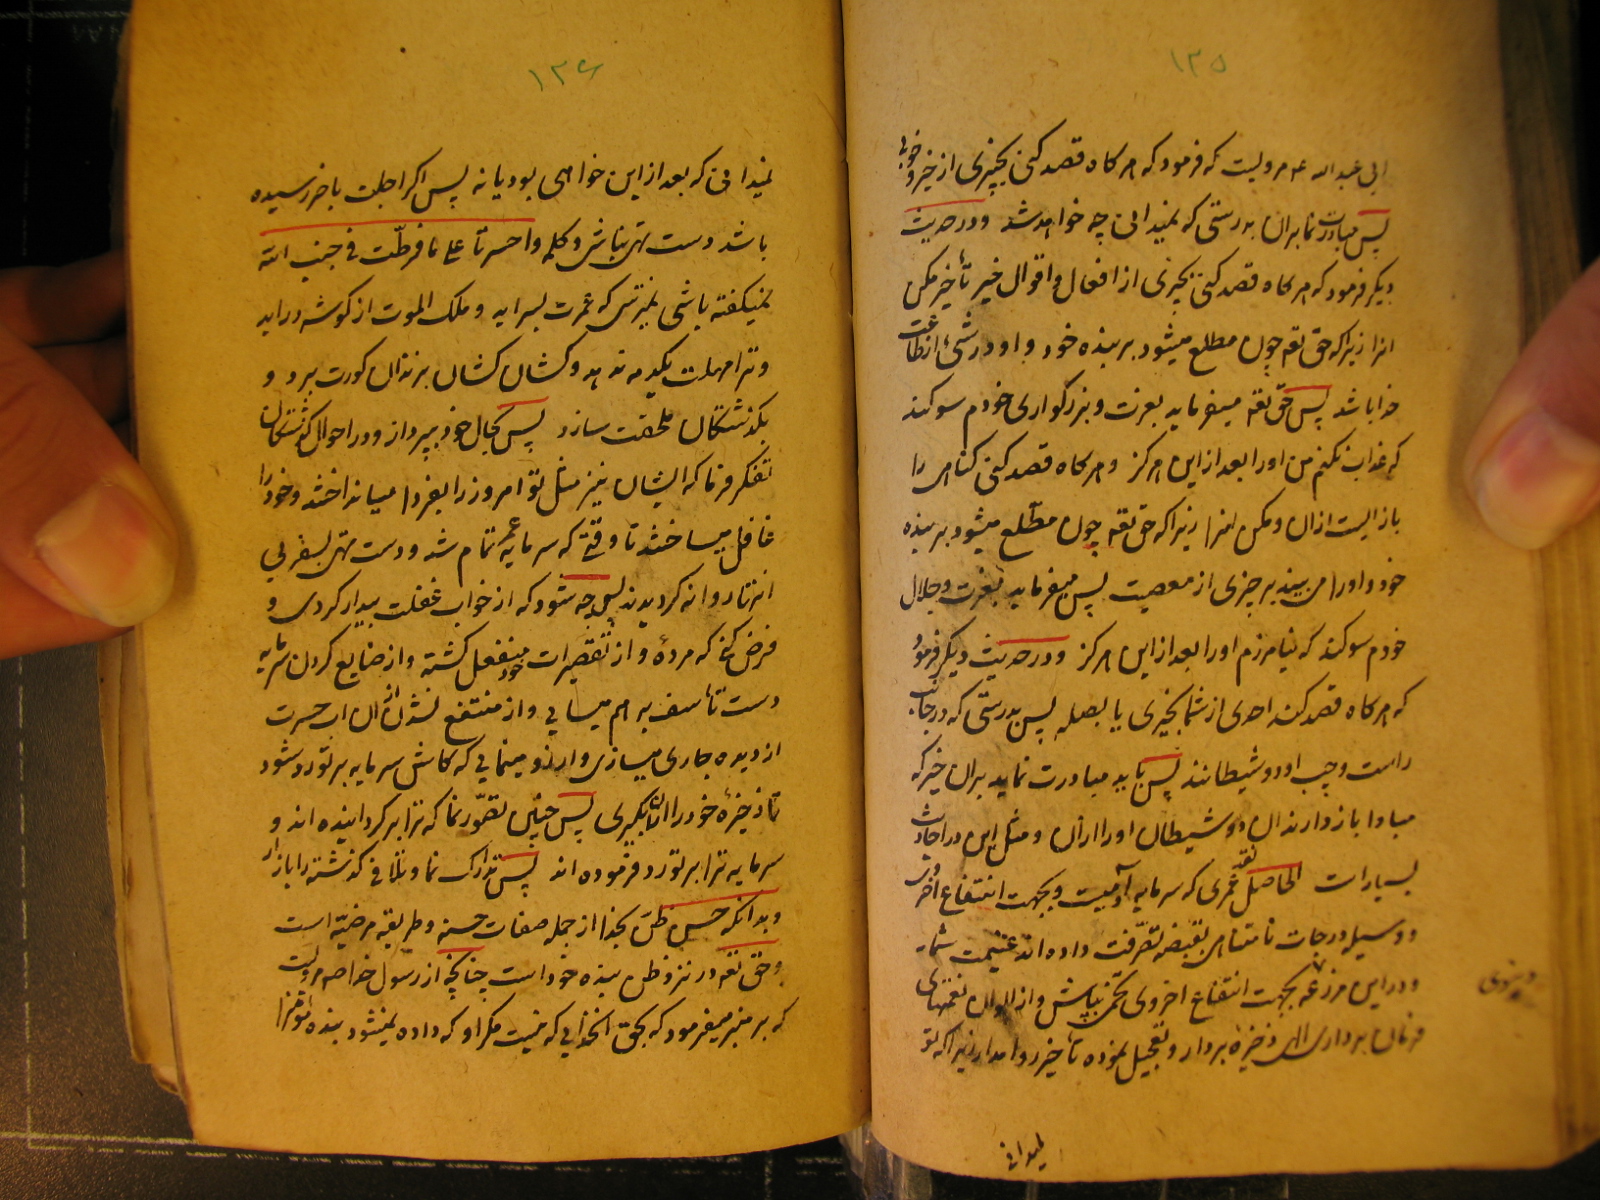 ۱۳۵
ابی عبدالله ع مرویست که فرمود که هر کاه قصد کنی بچیزی از خیر و خوبی
پس مبادرت نما بران بدرستی که نمیدانی چه خواهد شد و در حدیث
دیکر فرمود که هر کاه قصد کنی بچیزی از افعال و اقوال خیر تأخیر مکن
انرا زیرا که حق تعه چون مطلع میشود بر بنده خود و او در شیٔ از طاعت
خدا باشد پس حق تعه میفرماید بعزت و بزرکواری خودم سوکند
که عذاب نکنم من اورا بعد از این هرکز و هر کاه قصد کنی کناهی را
باز ایست ازان و مکن انرا زیرا که حق تعه چون مطّلع میشود بر بنده
خود و اورا می بیند بر چیزی از معصیت پس میفرماید بعزت و جلال
خودم سوکند که نیامرزم اورا بعد از این هرکز و در حدیث دیکر فرمود
که هر کاه قصد کند احدی از شما بخیری یا بصله پس بدرستی که در جانب
راست و چپ او دو شیطانند پس باید مبادرت نماید بران خیر که
مبادا باز دارند ان دو شیطان اورا ازان و مثل این در احادیث
بسیار است الحاصل نقد عمری که سرمایه آدمیت و بجهت انتفاع اخروی
و وسیله درجات نامتناهی بقبضه تصرّفت داده اند غنیمت شمار
و در این مزرعه بجهت انتفاع اخروی تخمی بپاش و از للوان نعمتهای
دنیوی
فرمانی برداری الهی ذخیرهٔ بردار و تعجیل نموده تأخیر روا مدار زیرا که تو
نمیدانی
۱۳۶
نمیدانی که بعد از این خواهی بود یا نه پس اکر اجلت باخر رسیده
باشد دست تهی نباشی و کلمه واحسرتا علی ما فرطّت فی جنب الله
نمیکفته باشی نمیترسی که عمرت بسر اید و ملک الموت از کوشه در اید
و ترا مهلت یکدم ندهد و کشان کشان بزندان کورت برد و
بکذشتکان ملحقت سازد پس بحال خود بپرداز و در احوال کذشتکان
تفکر فرما که ایشان نیز مثل تو امروز را بفردا میانداختند و خود را
غافل میساختند تا وقتی که سرمایه عمر تمام شد و دست تهی بسفر بی
انتها روانه کردیدند پس چه شود که از خواب غفلت بیدار کردی و
فرض کنی که مردهٔ و از تقصیرات خود منفعل کشته و از ضایع کردن سرمایه
دست تأسف بر هم میسایی و از منتفع نشدن ازان اب حسرت
از دیده جاری میسازی و ارزو مینمایی که کاش سرمایه بر تو رد شود
تا ذخیرهٔ خود را ازان بکیری پس چنین تصوّر نما که ترا بر کردانیده اند و
سرمایه ترا بر تو رد فرموده اند پس تدارک نما و تلافی کذشته را باز ار
و بدانکه حسن ظن بخدا از جمله صفات حسنه و طریقه مرضیّه است
و حق تعه در نزد ظن بنده خود است چنانچه از رسول خدا ص مرویست
که بر منبر میفرمود که بحق انخدایی که نیست مکر او که داده نمیشود بنده مؤمن را